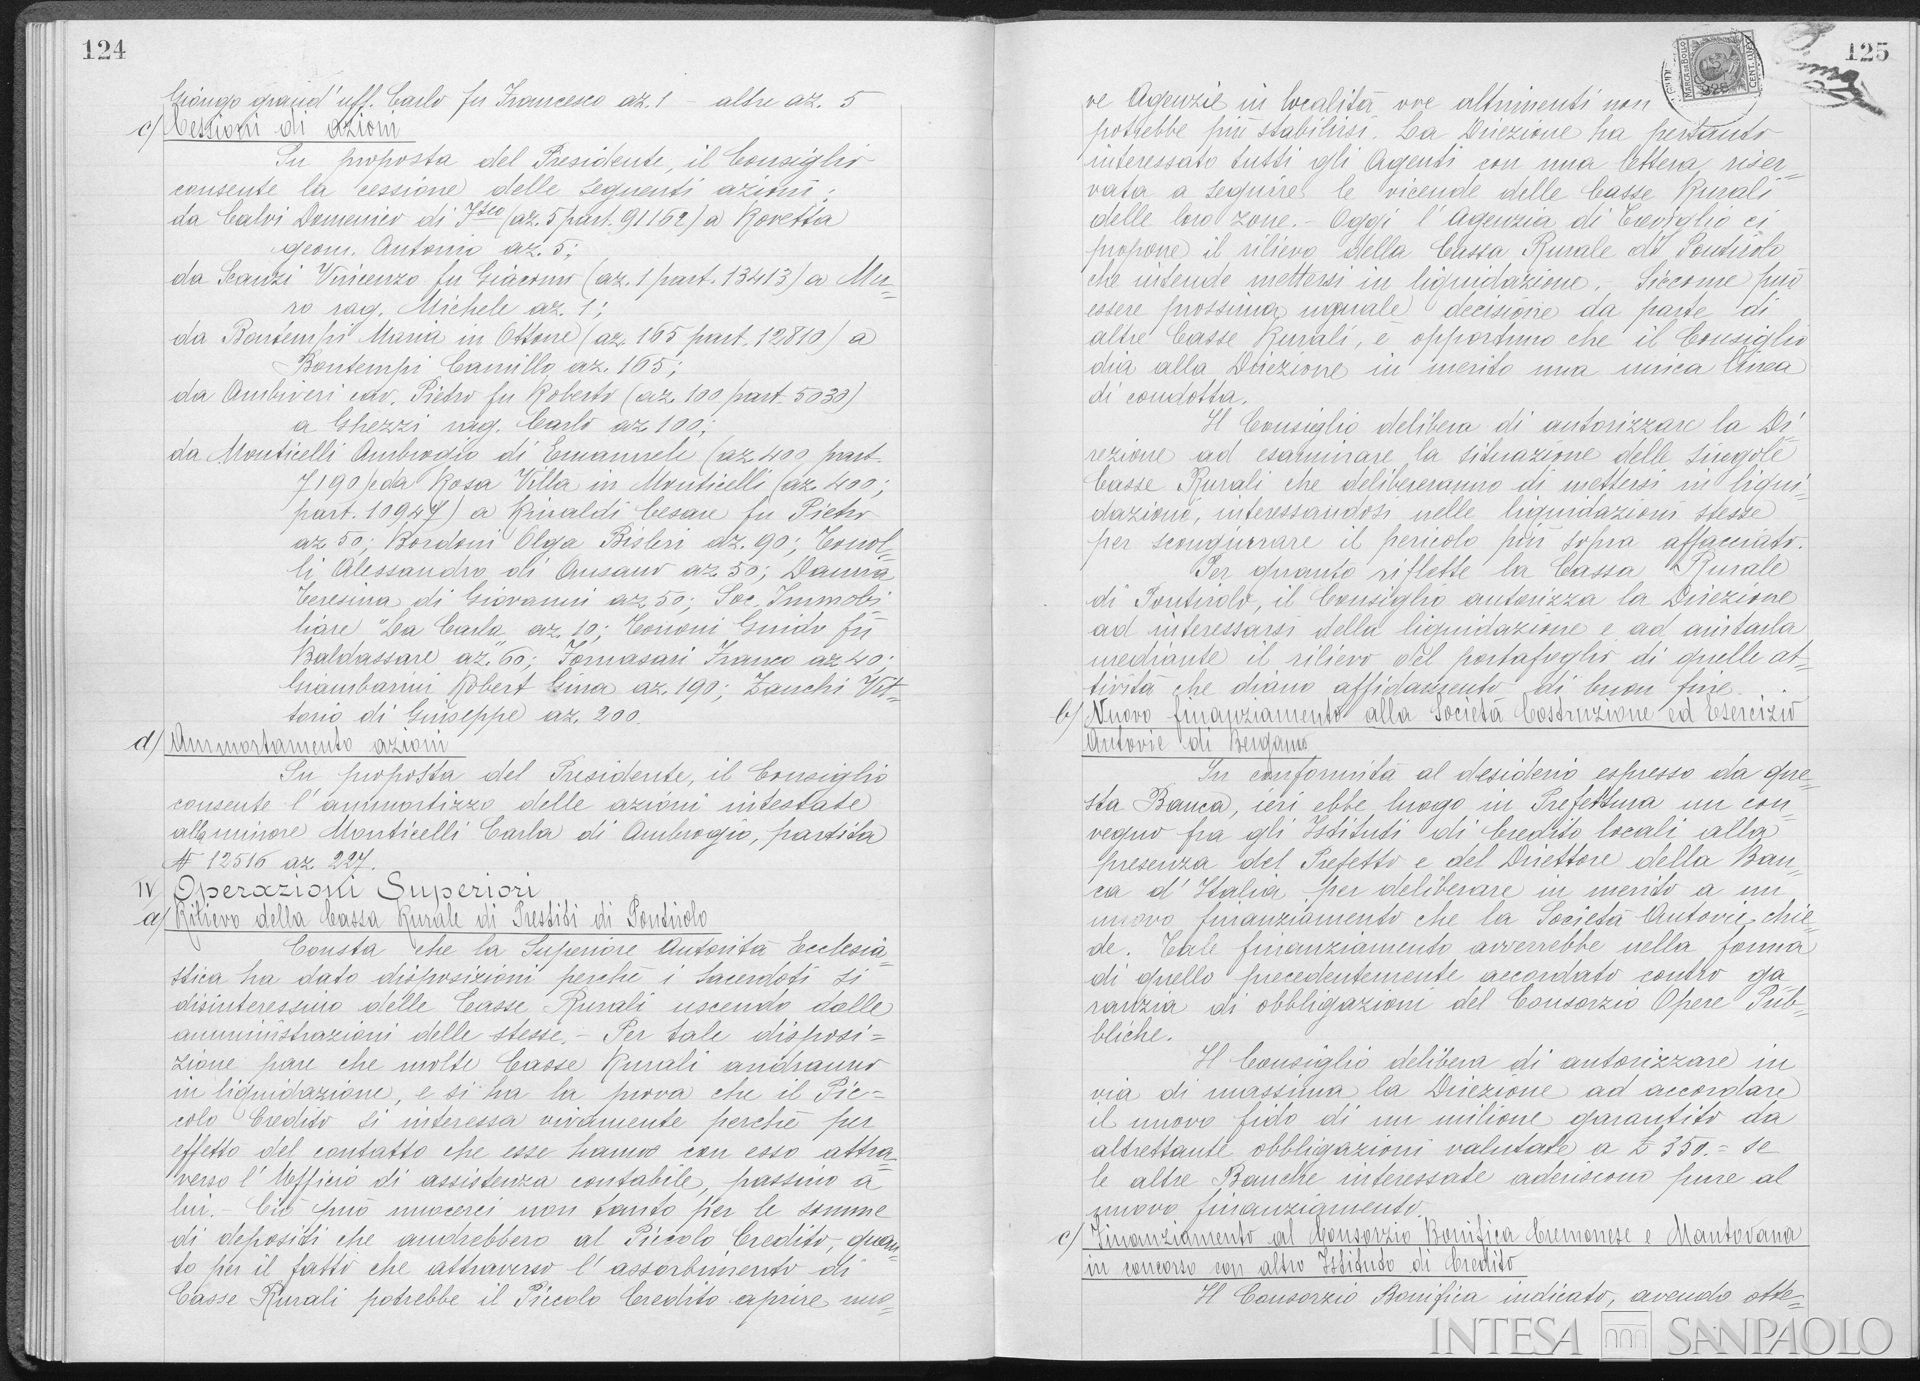 124
Giongo grand' uff. Carlo fu Francesco az. 1 – altre az. 5
c) Cessioni di azioni
Su proposta del Presidente, il Consiglio
consente la cessione delle seguenti azioni:
da Calvi Domenico di Fsco (az. 5 part. 91162) a Rovetta
geom. Antonio az. 5;
da Scanzi Vincenzo fu Giacomo (az. 1 part. 13413) a Mu=
ro rag. Michele az. 1;
da Bontempi Maria in Ottone (az. 165 part. 12810) a
Bontempi Camillo az. 165;
da Ambiveri cav. Pietro fu Roberto (az. 100 part. 5030)
a Ghezzi rag. Carlo az. 100;
da Monticelli Ambrogio di Emanuele (az. 400 part.
7190) e da Rosa Villa in Monticelli (az. 400;
part. 10947) a Rinaldi Cesare fu Pietro
az. 50; Bordoni Olga Bisleri az. 90; Tonol=
li Alessandro di Ausano az. 50; Danna
Teresina di Giovanni az. 50; Soc. Immobi
liare "La Carla" az. 10; Tononi Guido fu
Baldassare az. 60; Fornasari Franco az. 40;
Giambarini Robert Gina az. 190; Zanchi Vit=
torio di Giuseppe az. 200.
d) Ammortamento azioni
Su proposta del Presidente, il Consiglio
consente l'ammortizzo delle azioni intestate
alla minore Monticelli Carla di Ambrogio, partita
N 12516 az. 227.
IV Operazioni Superiori
a) Rilievo della Cassa Rurale di Prestiti di Pontirolo
Consta che la Superiore Autorità Ecclesia
stica ha dato disposizioni perchè i sacerdoti si
disinteressino delle Casse Rurali uscendo dalle
amministrazioni delle stesse. – Per tale disposi=
zione pare che molte Casse Rurali andranno
in liquidazione, e si ha la prova che il Pic=
colo Credito si interessa vivamente perchè per
effetto del contatto che esse hanno con esso attra=
verso l'Ufficio di assistenza contabile, passino a
lui. – Ciò può nuocerci non tanto per le somme
di depositi che andrebbero al Piccolo Credito, quan=
to per il fatto che attraverso l'assorbimento di
Casse Rurali potrebbe il Piccolo Credito aprire nuo=
125
MARCA DA BOLLO
CENT.
ve Agenzie in località ove altrimenti non
potrebbe più stabilirsi. La Direzione ha pertanto
interessato tutti gli Agenti con una lettera riser=
vata a seguire le vicende delle Casse Rurali
delle loro zone. – Oggi l'Agenzia di Treviglio ci
propone il rilievo della Cassa Rurale di Pontirolo
che intende mettersi in liquidazione. – Siccome può
essere prossima uguale decisione da parte di
altre Casse Rurali, è opportuno che il Consiglio
dia alla Direzione in merito una unica linea
di condotta.
Il Consiglio delibera di autorizzare la Di=
rezione ad esaminare la situazione delle singole
Casse Rurali che delibereranno di mettersi in liqui=
dazione, interessandosi nelle liquidazioni stesse
per scongiurare il pericolo più sopra affacciato.
Per quanto riflette la Cassa Rurale
di Pontirolo, il Consiglio autorizza la Direzione
ad interessarsi della liquidazione e ad aiutarla
mediante il rilievo del portafoglio di quelle at=
tività che diano affidamento di buon fine.
b) Nuovo finanziamento alla Società Costruzione ed Esercizio
Autovie di Bergamo
In conformità al desiderio espresso da que=
sta Banca, ieri ebbe luogo in Prefettura un con=
vegno fra gli Istituti di Credito locali alla
presenza del Prefetto e del Direttore della Ban=
ca d'Italia per deliberare in merito a un
nuovo finanziamento che la Società Autovie chie=
de. Tale finanziamento avverrebbe nella forma
di quello precedentemente accordato contro ga
ranzia di obbligazioni del Consorzio Opere Pub=
bliche.
Il Consiglio delibera di autorizzare in
via di massima la Direzione ad accordare
il nuovo fido di un milione garantito da
altrettante obbligazioni valutate a £ 350.= se
le altre Banche interessate aderiscono pure al
nuovo finanziamento.
c) Finanziamento al Consorzio Bonifica Cremonese e Mantovana
in concorso con altro Istituto di Credito
Il Consorzio Bonifica indicato, avendo otte=
INTESA SANPAOLO